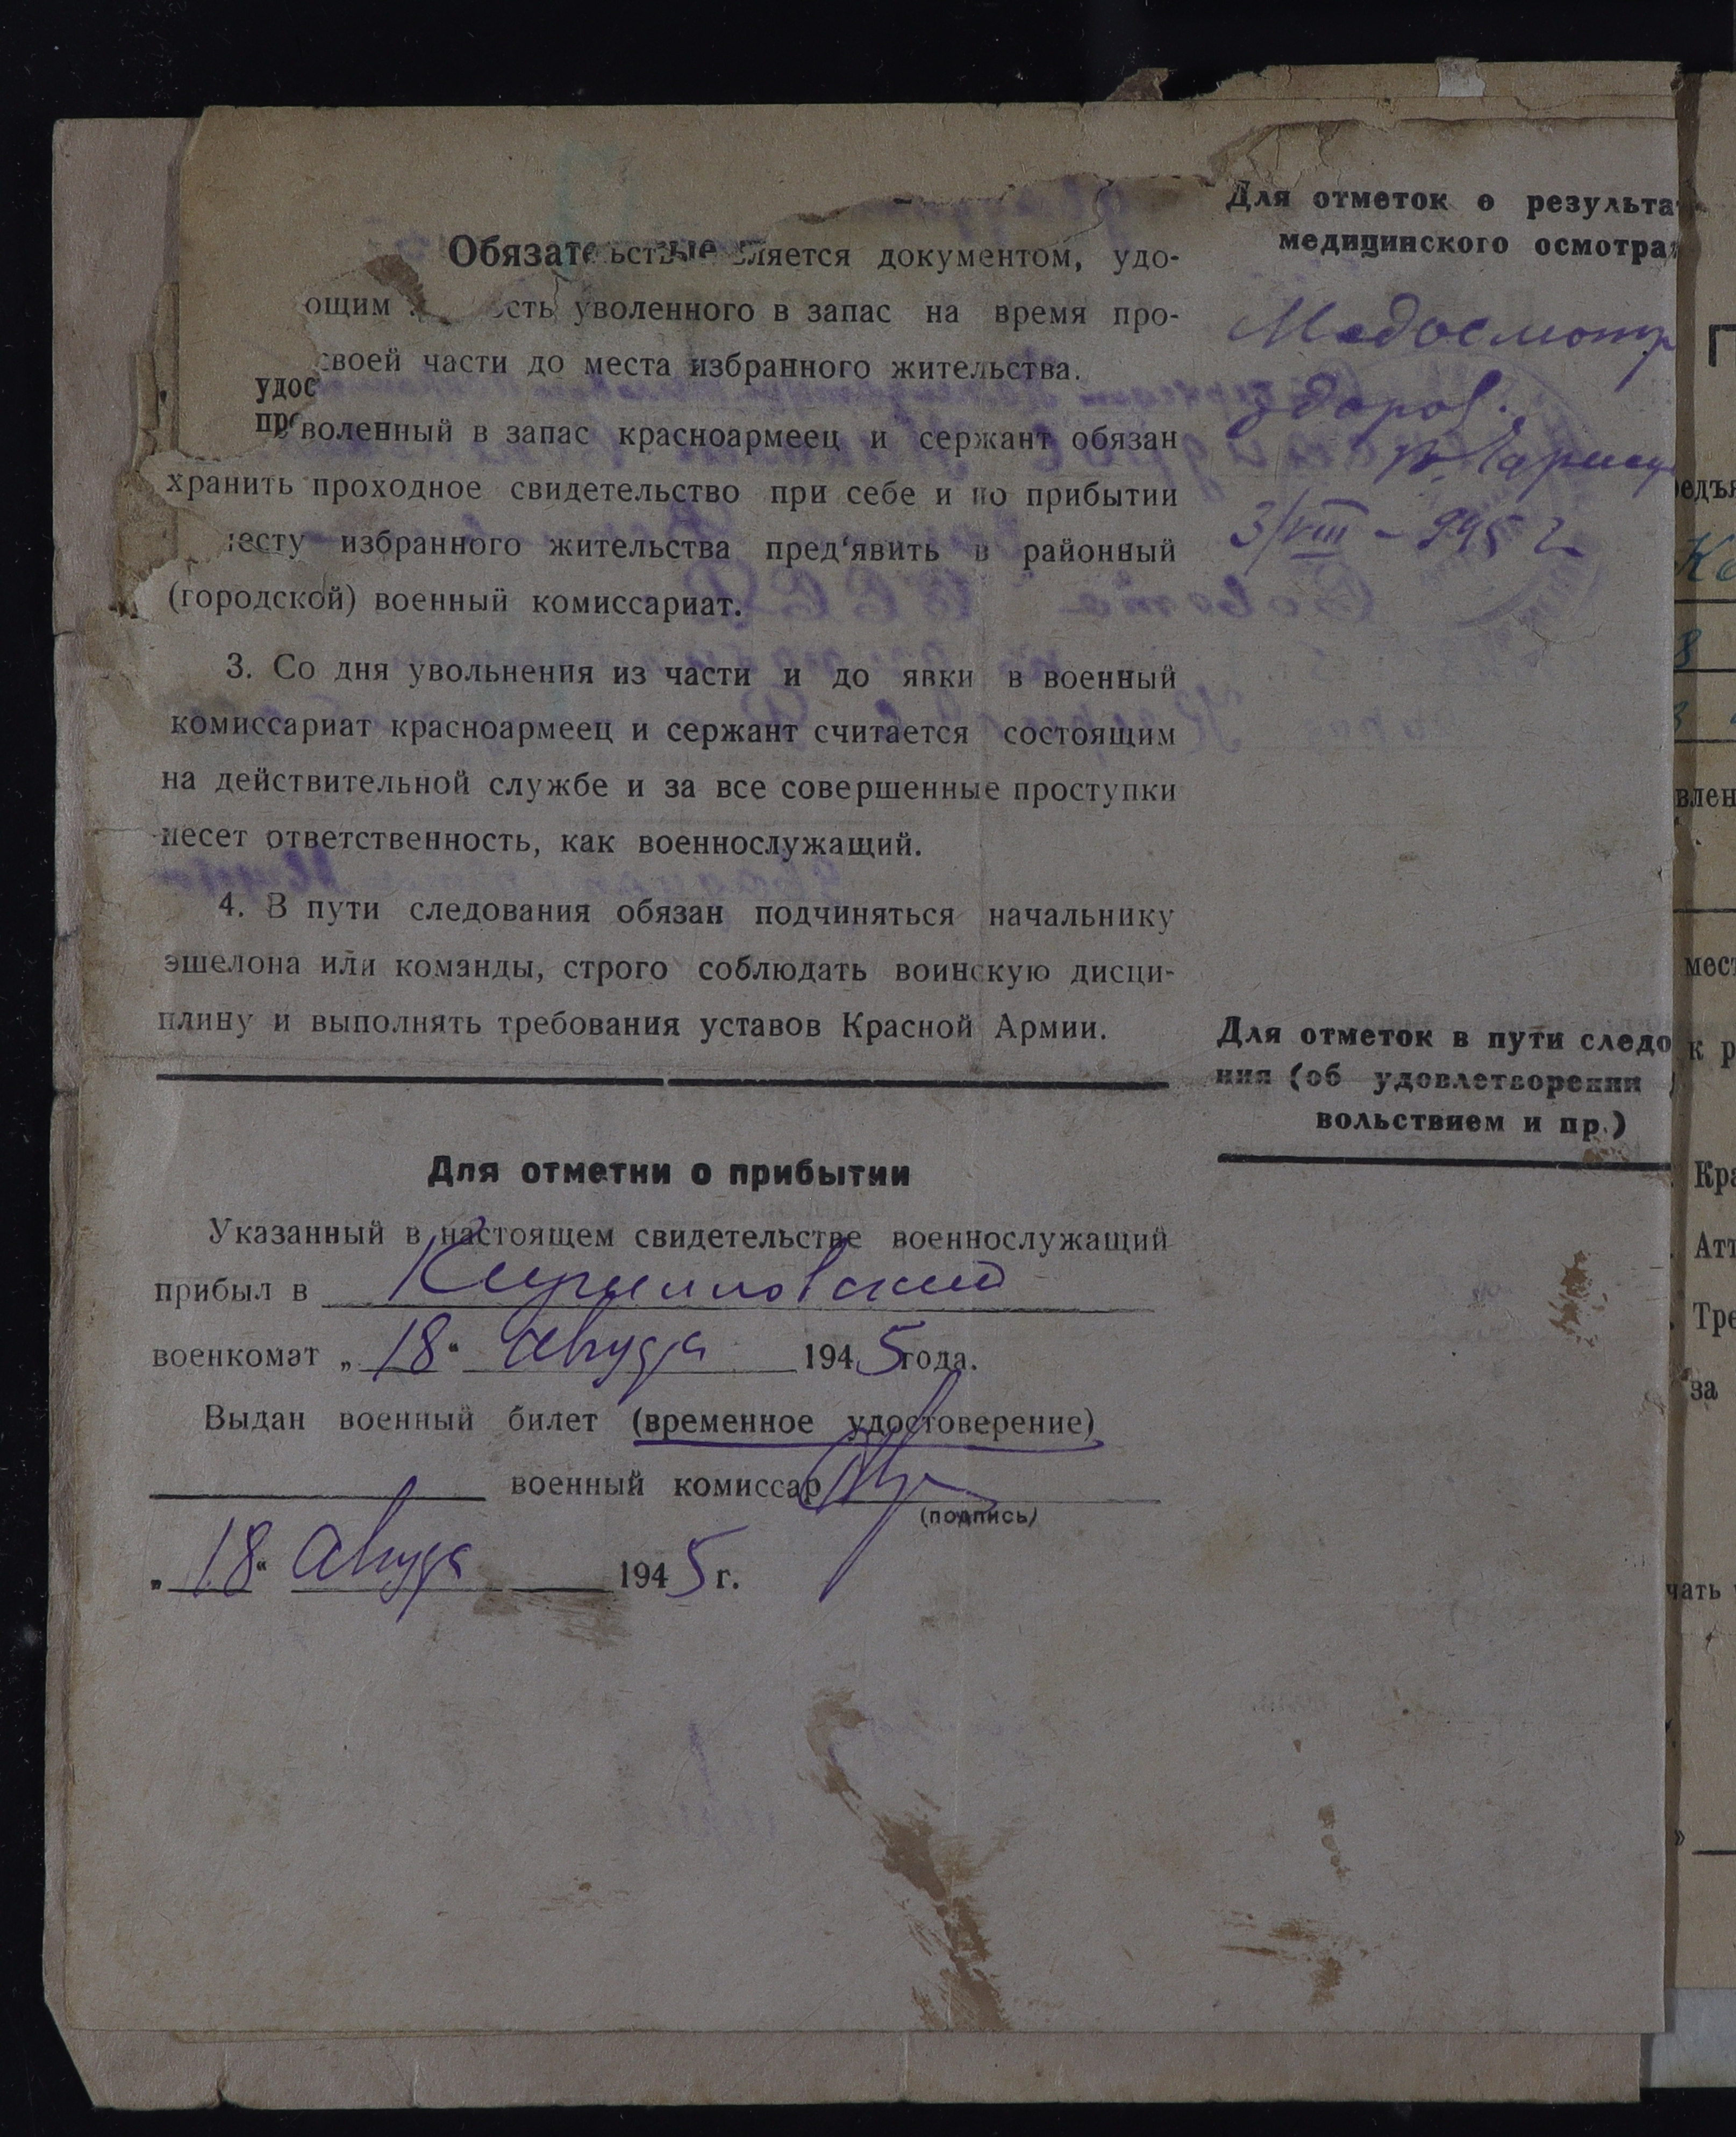 Обязате
ьст ые вляется документом, удо-
ющим ость уволенного в запас на время про-
своей части до места избранного жительства.
удос
пр
воленный в запас красноармеец и сержант обязан
хранить проходное свидетельство при себе и по прибытии
месту избранного жительства пред'явить в районный
(городской) военный комиссариат.
3. Со дня увольнения из части и до явки в военный
комиссариат красноармеец и сержант считается состоящим
на действительной службе и за все совершенные проступки
несет ответственность, как военнослужащий.
4. В пути следования обязан подчиняться начальнику
эшелона или команды, строго соблюдать воинскую дисци-
плину и выполнять требования уставов Красной Армии.
Для отметки о прибытии
Указанный в настоящем свидетельстве военнослужащий
прибыл в Кирилловский
военкомат „18“ августа 1945 года.
Выдан военный билет (временное удостоверение)
военный комиссар
(подпись)
„18“ августа 1945 г.
Для отметок о результа
медицинского осмотра
Медосмотр
здоров.
3/VIII – 945 г
Для отметок в пути следо
ния (об удовлетворении
вольствием и пр.)
П
редъя
Ка
8
3
влен
мест
к р
Кра
Атт
Тре
за
чать
»